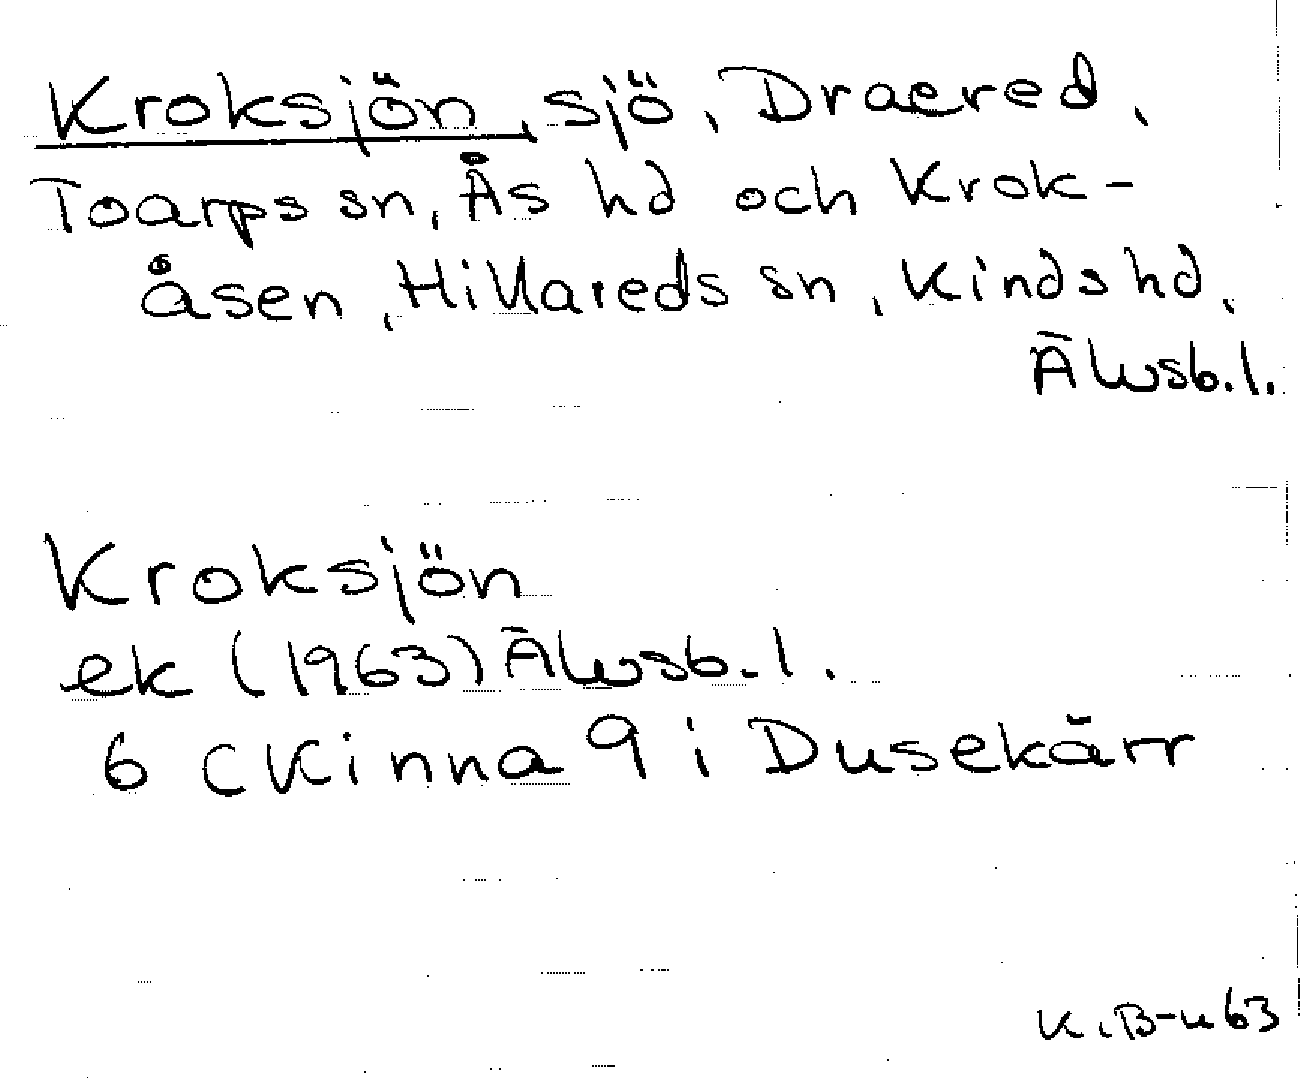 Kroksjön, sjö, Draered,
Toarps sn, Ås hd och Krok-
åsen, Hillareds sn, Kinds hd,
Älvsb. l.
Kroksjön
ek (1963) Älvsb. l.
6 C Kinna 9 i Dusekärr
K.B-n 63